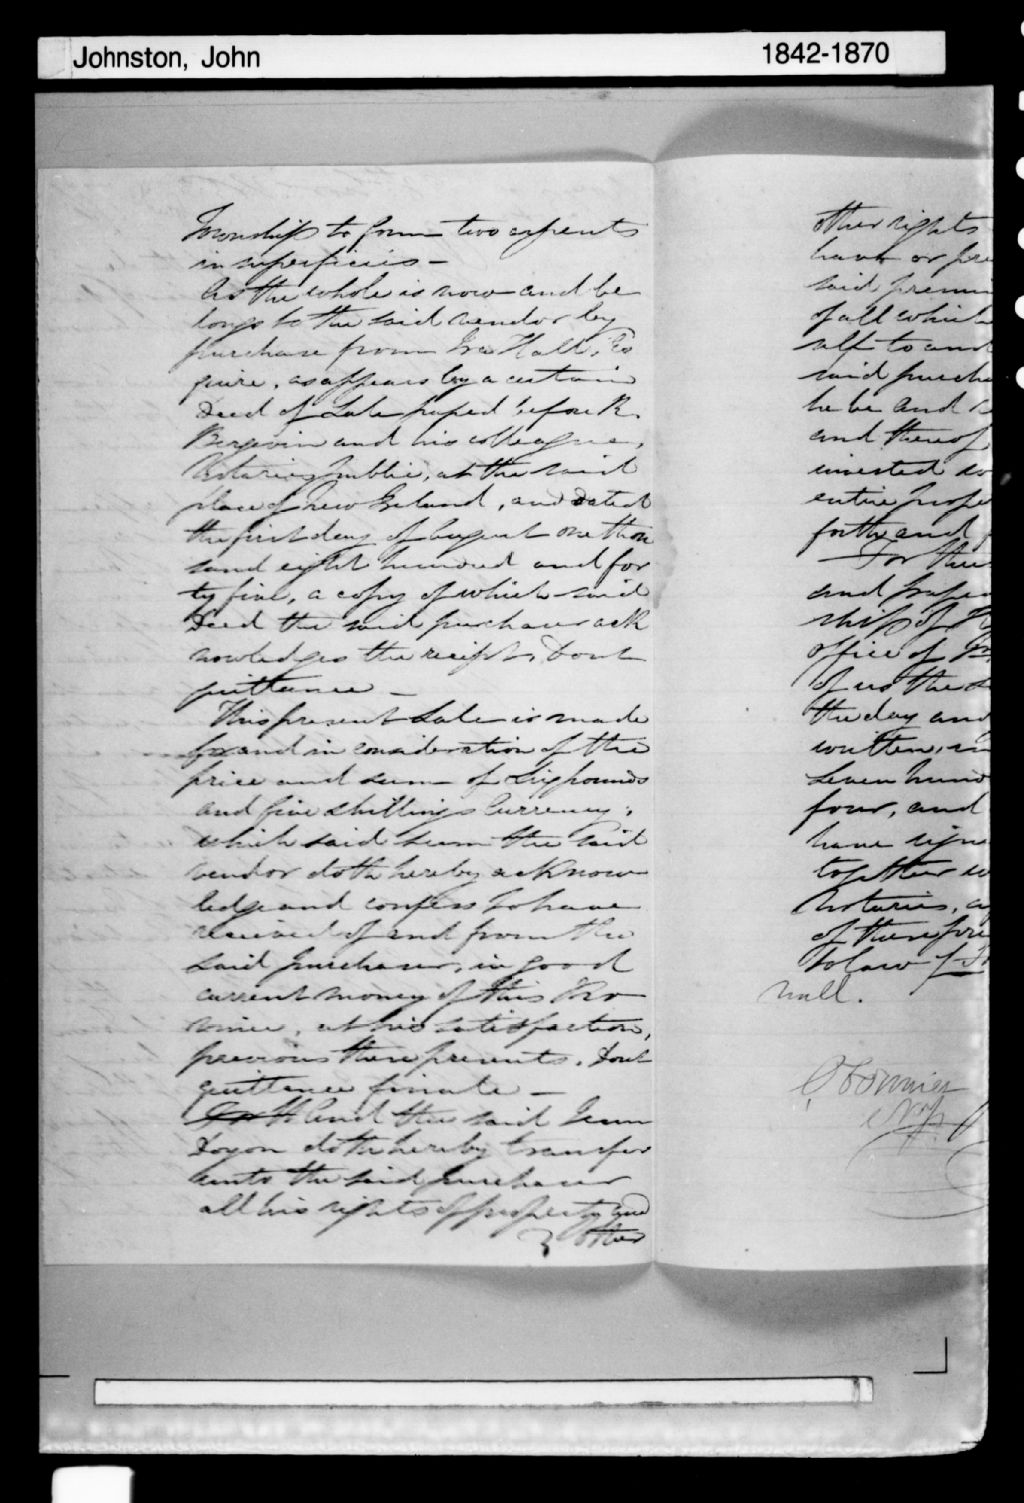 Johnston, John
1842-1870
Township to form two arpents
in superficies —
As the whole is now and be
longs to the said vendor by
purchase from Ira Hall, Es
quire, as appears by a certain
Deed of Sale passed before R.
Bergevin and his colleague,
Notaries Public, at the said
place of New Ireland, and dated
the first day of August one thou
sand eight hundred and for
ty five, a copy of which said
Deed the said purchaser ack
nowledges the receipt, Dont
quittance —
This present Sale is made
for and in consideration of the
price and sum of Six pounds
and five shillings Currency;
which said sum the said
vendor doth hereby acknow
ledge and confess to have
received of and from the
said purchaser, in good
current money of this Pro
vince, at his satisfaction,
previous these presents. Dont
quittance finale —
And the said Jean
Doyon doth hereby transfer
unto the said purchaser
all his rights of property and
other
other rights
have or pre
said premi
of all which
self to and
said purcha
he be and
and thereof
invested
entire prope
forth and
For the
and pass
ship of
office of
of us the
the day and
written, in
seven hund
four, and
have sign
together w
Notaries,
of these pre
to law
null.